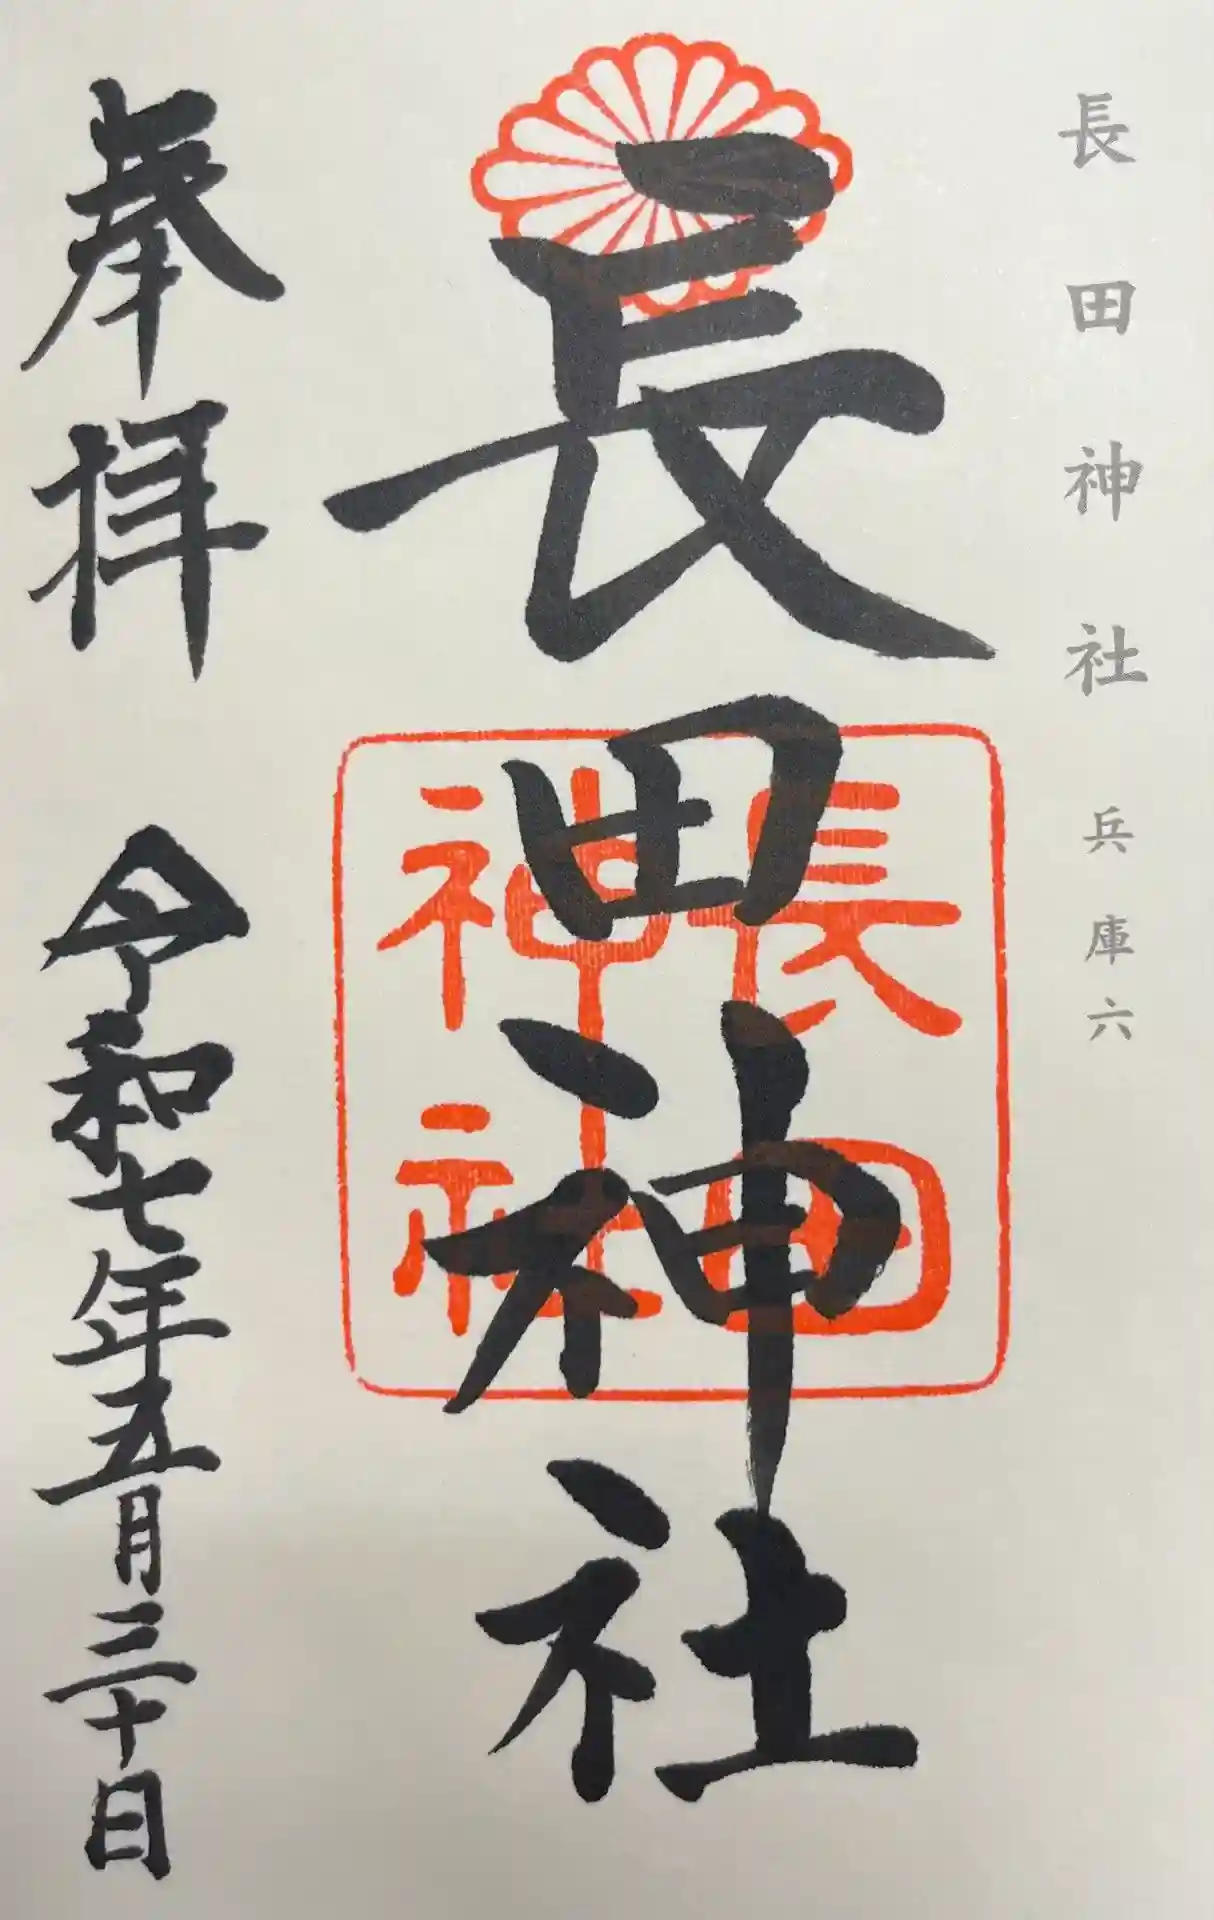 長田神社 兵庫六
長田神社
長田
神社
奉拝 令和七年五月三十日